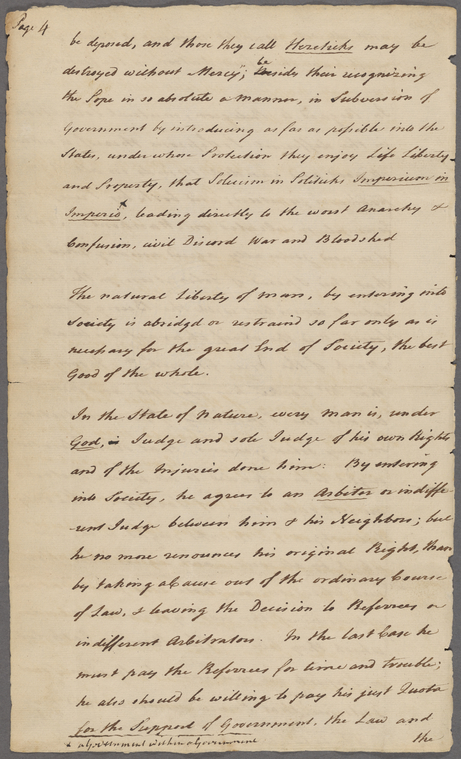 Page 4
be deposed, and those they call Hereticks may be
destroyed without Mercy"; besides their recognizing
the Pope in so absolute a manner, in Subversion of
Government by introducing as far as possible into the
States, under whose Protection they enjoy Life Liberty
and Property, that Solecism in Politicks Imperium in
Imperio,* leading directly to the worst Anarchy &
Confusion, civil Discord War and Bloodshed
The natural Liberty of man, by entering into
Society is abridgd or restraind so far only as is
necessary for the great End of Society, the best
Good of the whole.
In the State of Nature, every man is, under
God, is Judge and sole Judge of his own Rights
and of the Injuries done him: By entering
into Society, he agrees to an Arbiter or indiffe
-rent Judge between him & his Neighbors; but
he no more renounces his original Right, than
by taking a Cause out of the ordinary Course
of Law, & leaving the Decision to Referrees or
indifferent Arbitrators. In the last Case he
must pay the Referrees for time and trouble;
he also should be willing to pay his just Quota
for the Support of Government, the Law and
* a Government within a Government
the